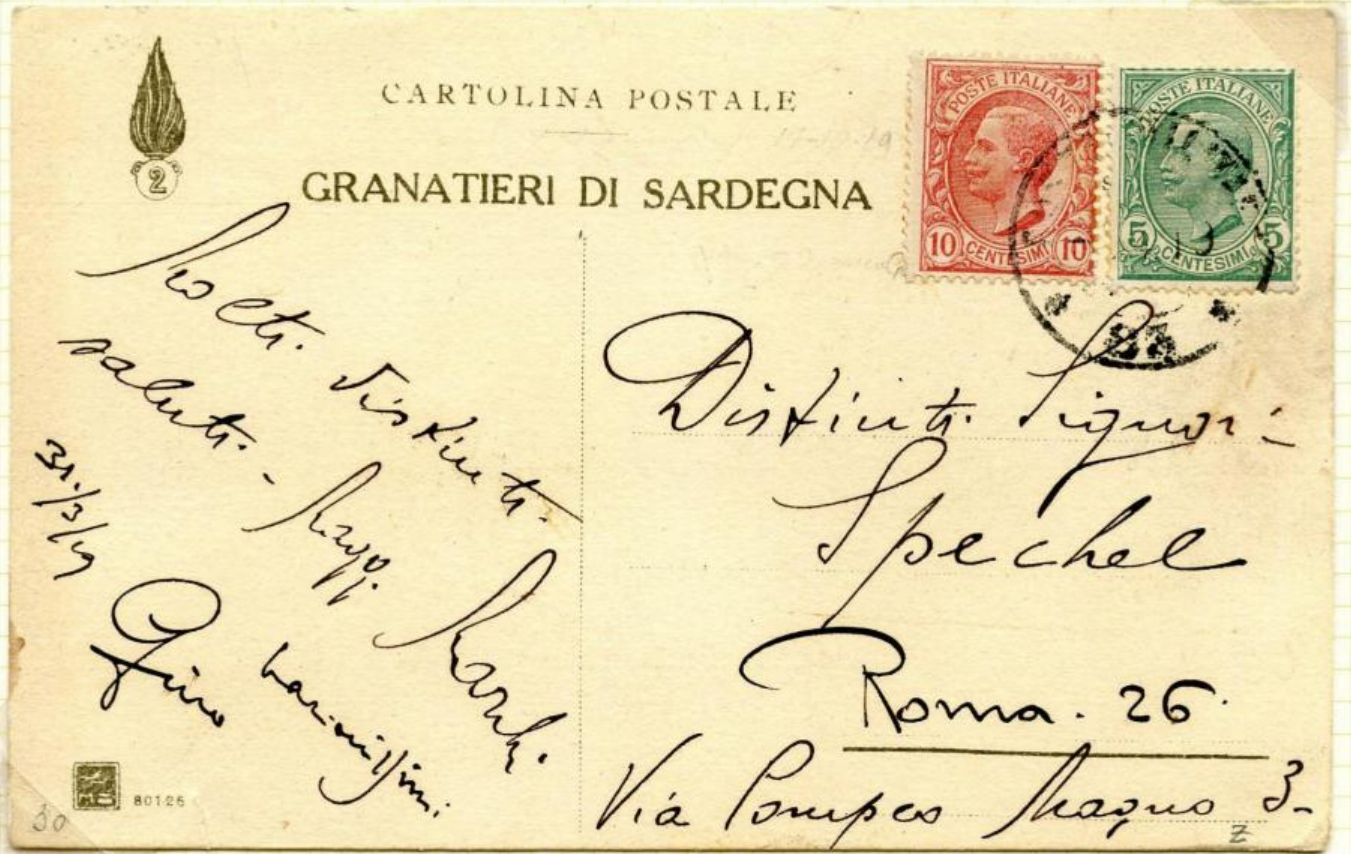 CARTOLINA POSTALE
GRANATIERI DI SARDEGNA
2
POSTE ITALIANE
10 CENTESIMI 10
POSTE ITALIANE
5 CENTESIMI 5
83
Molti distinti
saluti.
31./3/19
Magg. Marchi
Gino
Distinti Signori
Spechel
Roma. 26.
Via Pompeo Magno 3-
80126
30
Z